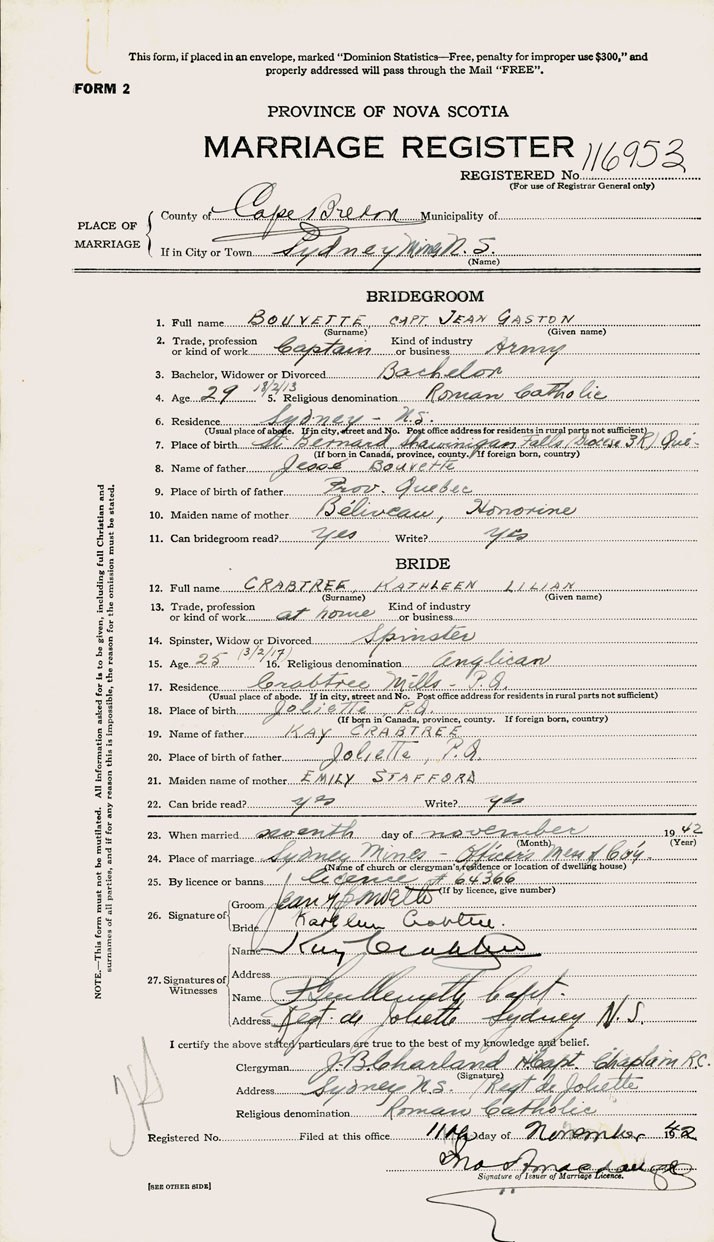 This form, if placed in an envelope, marked "Dominion Statistics—Free, penalty for improper use $300," and
properly addressed will pass through the Mail "FREE".
FORM 2
PROVINCE OF NOVA SCOTIA
MARRIAGE REGISTER
116953
REGISTERED No.
(For use of Registrar General only)
PLACE OF MARRIAGE
County of Cape Breton Municipality of
If in City or Town Sydney Mines N.S.
(Name)
BRIDEGROOM
1. Full name BOUVETTE, CAPT. JEAN GASTON
(Surname) (Given name)
2. Trade, profession or kind of work Captain Kind of industry or business Army
3. Bachelor, Widower or Divorced Bachelor
4. Age 29 18/2/13 5. Religious denomination Roman Catholic
6. Residence Sydney - N.S.
(Usual place of abode. If in city, street and No. Post office address for residents in rural parts not sufficient)
7. Place of birth St Bernard Shawinigan Falls (Diocese 3R) Que-
(If born in Canada, province, county. If foreign born, country)
8. Name of father Jessé Bouvette
9. Place of birth of father Prov. Quebec
10. Maiden name of mother Béliveau, Honorine
11. Can bridegroom read? Yes Write? Yes
BRIDE
12. Full name CRABTREE, KATHLEEN LILIAN
(Surname) (Given name)
13. Trade, profession or kind of work at home Kind of industry or business
14. Spinster, Widow or Divorced Spinster
15. Age 25 (3/2/17) 16. Religious denomination Anglican
17. Residence Crabtree Mills - P.Q.
(Usual place of abode. If in city, street and No. Post office address for residents in rural parts not sufficient)
18. Place of birth Joliette P.Q.
(If born in Canada, province, county. If foreign born, country)
19. Name of father KAY CRABTREE
20. Place of birth of father Joliette, P.Q.
21. Maiden name of mother EMILY STAFFORD
22. Can bride read? yes Write? yes
23. When married day of november 1942
(Month) (Year)
24. Place of marriage Sydney Mines - Officers Mess
(Name of church or clergyman's residence or location of dwelling house)
25. By licence or banns licence # 64366
(If by licence, give number)
26. Signature of Groom Jean G Bouvette
Bride Kathleen Crabtree.
27. Signatures of Witnesses
Name Kay Crabtree
Address
Name Capt.
Address Regt. de Joliette Sydney N.S.
I certify the above stated particulars are true to the best of my knowledge and belief.
Clergyman J.B. Charland H/Capt. Chaplain R.C.
(Signature)
Address Sydney N.S. Regt de Joliette
Religious denomination Roman Catholic
Registered No. Filed at this office 11th day of November 1942
Signature of Issuer of Marriage Licence.
[SEE OTHER SIDE]
NOTE.—This form must not be mutilated. All information asked for is to be given, including full Christian and
surnames of all parties, and if for any reason this is impossible, the reason for the omission must be stated.